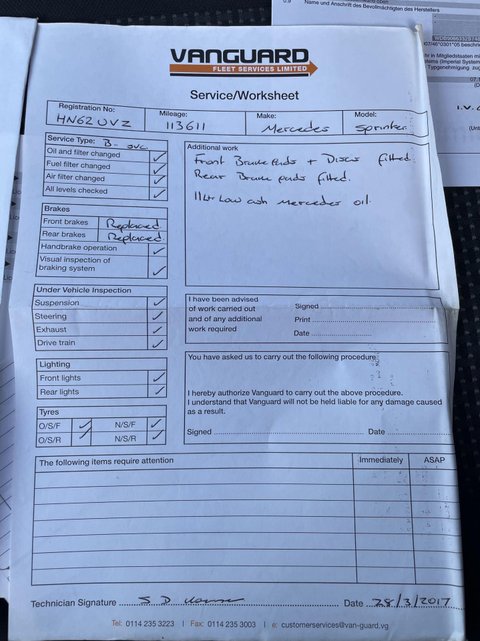 0.9 Name und Anschrift des Bevollmächtigten des Herstellers
VANGUARD
FLEET SERVICES LIMITED
Service/Worksheet
Registration No: HN62UVZ
Mileage: 113611
Make: Mercedes
Model: Sprinter
Service Type: B- svc.
Oil and filter changed ✓
Fuel filter changed ✓
Air filter changed ✓
All levels checked ✓
Brakes
Front brakes Replaced
Rear brakes Replaced
Handbrake operation ✓
Visual inspection of
braking system ✓
Under Vehicle Inspection
Suspension ✓
Steering ✓
Exhaust ✓
Drive train ✓
Lighting
Front lights ✓
Rear lights ✓
Tyres
O/S/F ✓ N/S/F ✓
O/S/R ✓ N/S/R ✓
Additional work
Front Brake Pads + Discs fitted.
Rear Brake pads fitted.
11Ltr Low ash Mercedes oil.
I have been advised
of work carried out
and of any additional
work required
Signed
Print
Date
You have asked us to carry out the following procedure
I hereby authorize Vanguard to carry out the above procedure.
I understand that Vanguard will not be held liable for any damage caused
as a result.
Signed Date
The following items require attention Immediately ASAP
Technician Signature S D Date 28/3/2017
Tel: 0114 235 3223 | Fax: 0114 235 3003 | e: customerservices@van-guard.vg